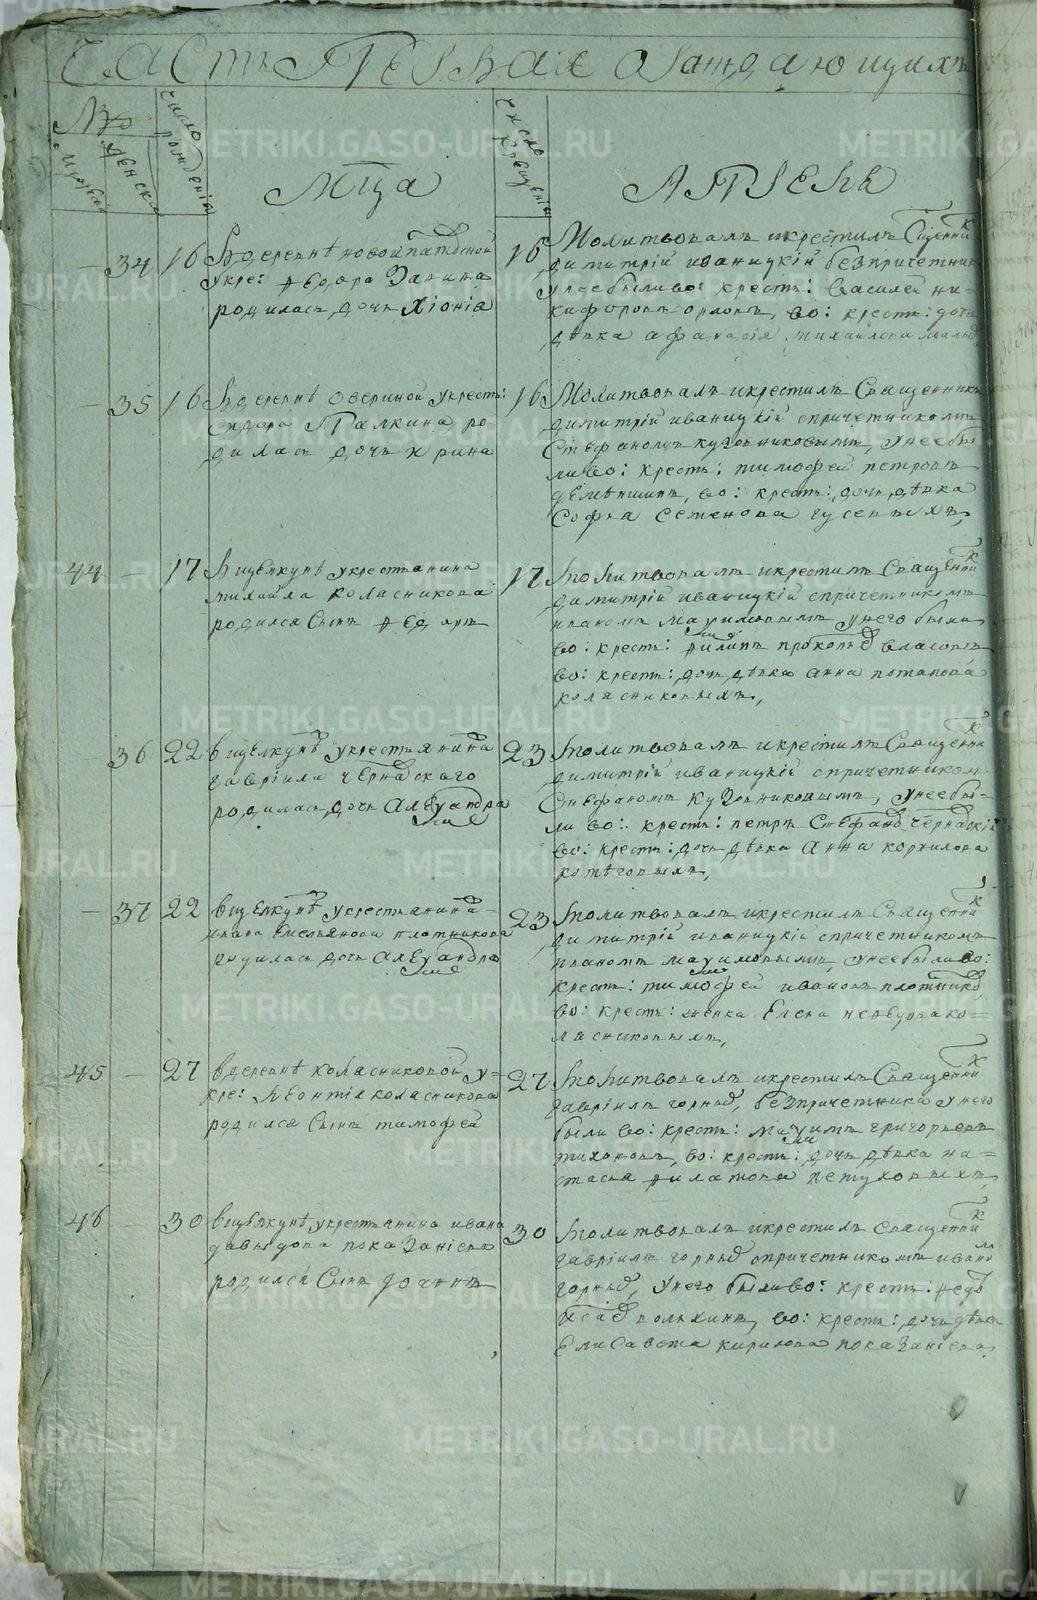 Часть Первая о раждающихся
№
мужеска
женска
число рожденія
Мца
число крещенія
Апрель
34
16
в деревне
укре: Ѳедора Занина
родилась дочь Хіонія
16
Молитвовалъ и крестилъ Сщенникъ
димитрій иваницкій без причетника
у нее были во: кресть: Василей ни-
кифоровъ орловъ, во: кресть: дочь
девка михаилова
35
16
в деревне Овериной у кресть:
Сидора Галкина ро-
дилась дочь ирина
16
Молитвовалъ и крестилъ Священникъ
димитрій иваницкій с причетникомъ
Стефаномъ кузовниковымъ, у нее бы
ли во: кресть: тимофей петровъ
во: кресть: дочь девка
Софья Семенова гусевыхъ,
44
17
в щелкунѣ у крестьянина
михаила коласникова
родился Сынъ Ѳедоръ
17
молитвовалъ и крестилъ Священникъ
димитрій иваницкій с причетникомъ
иваномъ максимовымъ у него были
во: кресть: филипъ прокопьевъ власовъ
во: кресть: дочь девка анна потапова
коласниковыхъ,
36
22
в щелкунѣ у крестьянина
гавріила чернавскаго
родилась дочь Александра
23
молитвовалъ и крестилъ Священникъ
димитрій иваницкій с причетником
Стефаномъ кузовниковымъ, у нее бы-
ли во: кресть: петръ Стефановъ чернавскій
во: кресть: дочь девка Анна корнилова
котеговыхъ,
37
22
в щелкунѣ у крестьянина
ивана Емельянова плотникова
родилась дочь Александра
23
молитвовалъ и крестилъ Священникъ
димитрій иваницкій с причетникомъ
иваномъ максимовымъ, у нее были во:
кресть: тимофей ивановъ плотниковъ
во: кресть: женка Елена ко=
ласниковыхъ,
45
27
в деревне коласниковой у=
кре: Леонтія коласникова
родился Сынъ тимофей
27
молитвовалъ и крестилъ Священникъ
гавріилъ горныхъ, без причетника у него
были во: кресть: максимъ григорьевъ
тихоновъ, во: кресть: дочь девка на=
стасья филатова петуховыхъ,
46
30
в щелкунѣ, у крестьянина ивана
давыдова показаніева
родился Сынъ
30
молитвовалъ и крестилъ Священникъ
гавріилъ горныхъ с причетникомъ иваномъ
горныхъ, у него были во: кресть: Ѳедоръ
во: кресть: дочь девка
Елисавета кирилова показаніева,
METRIKI.GASO-URAL.RU